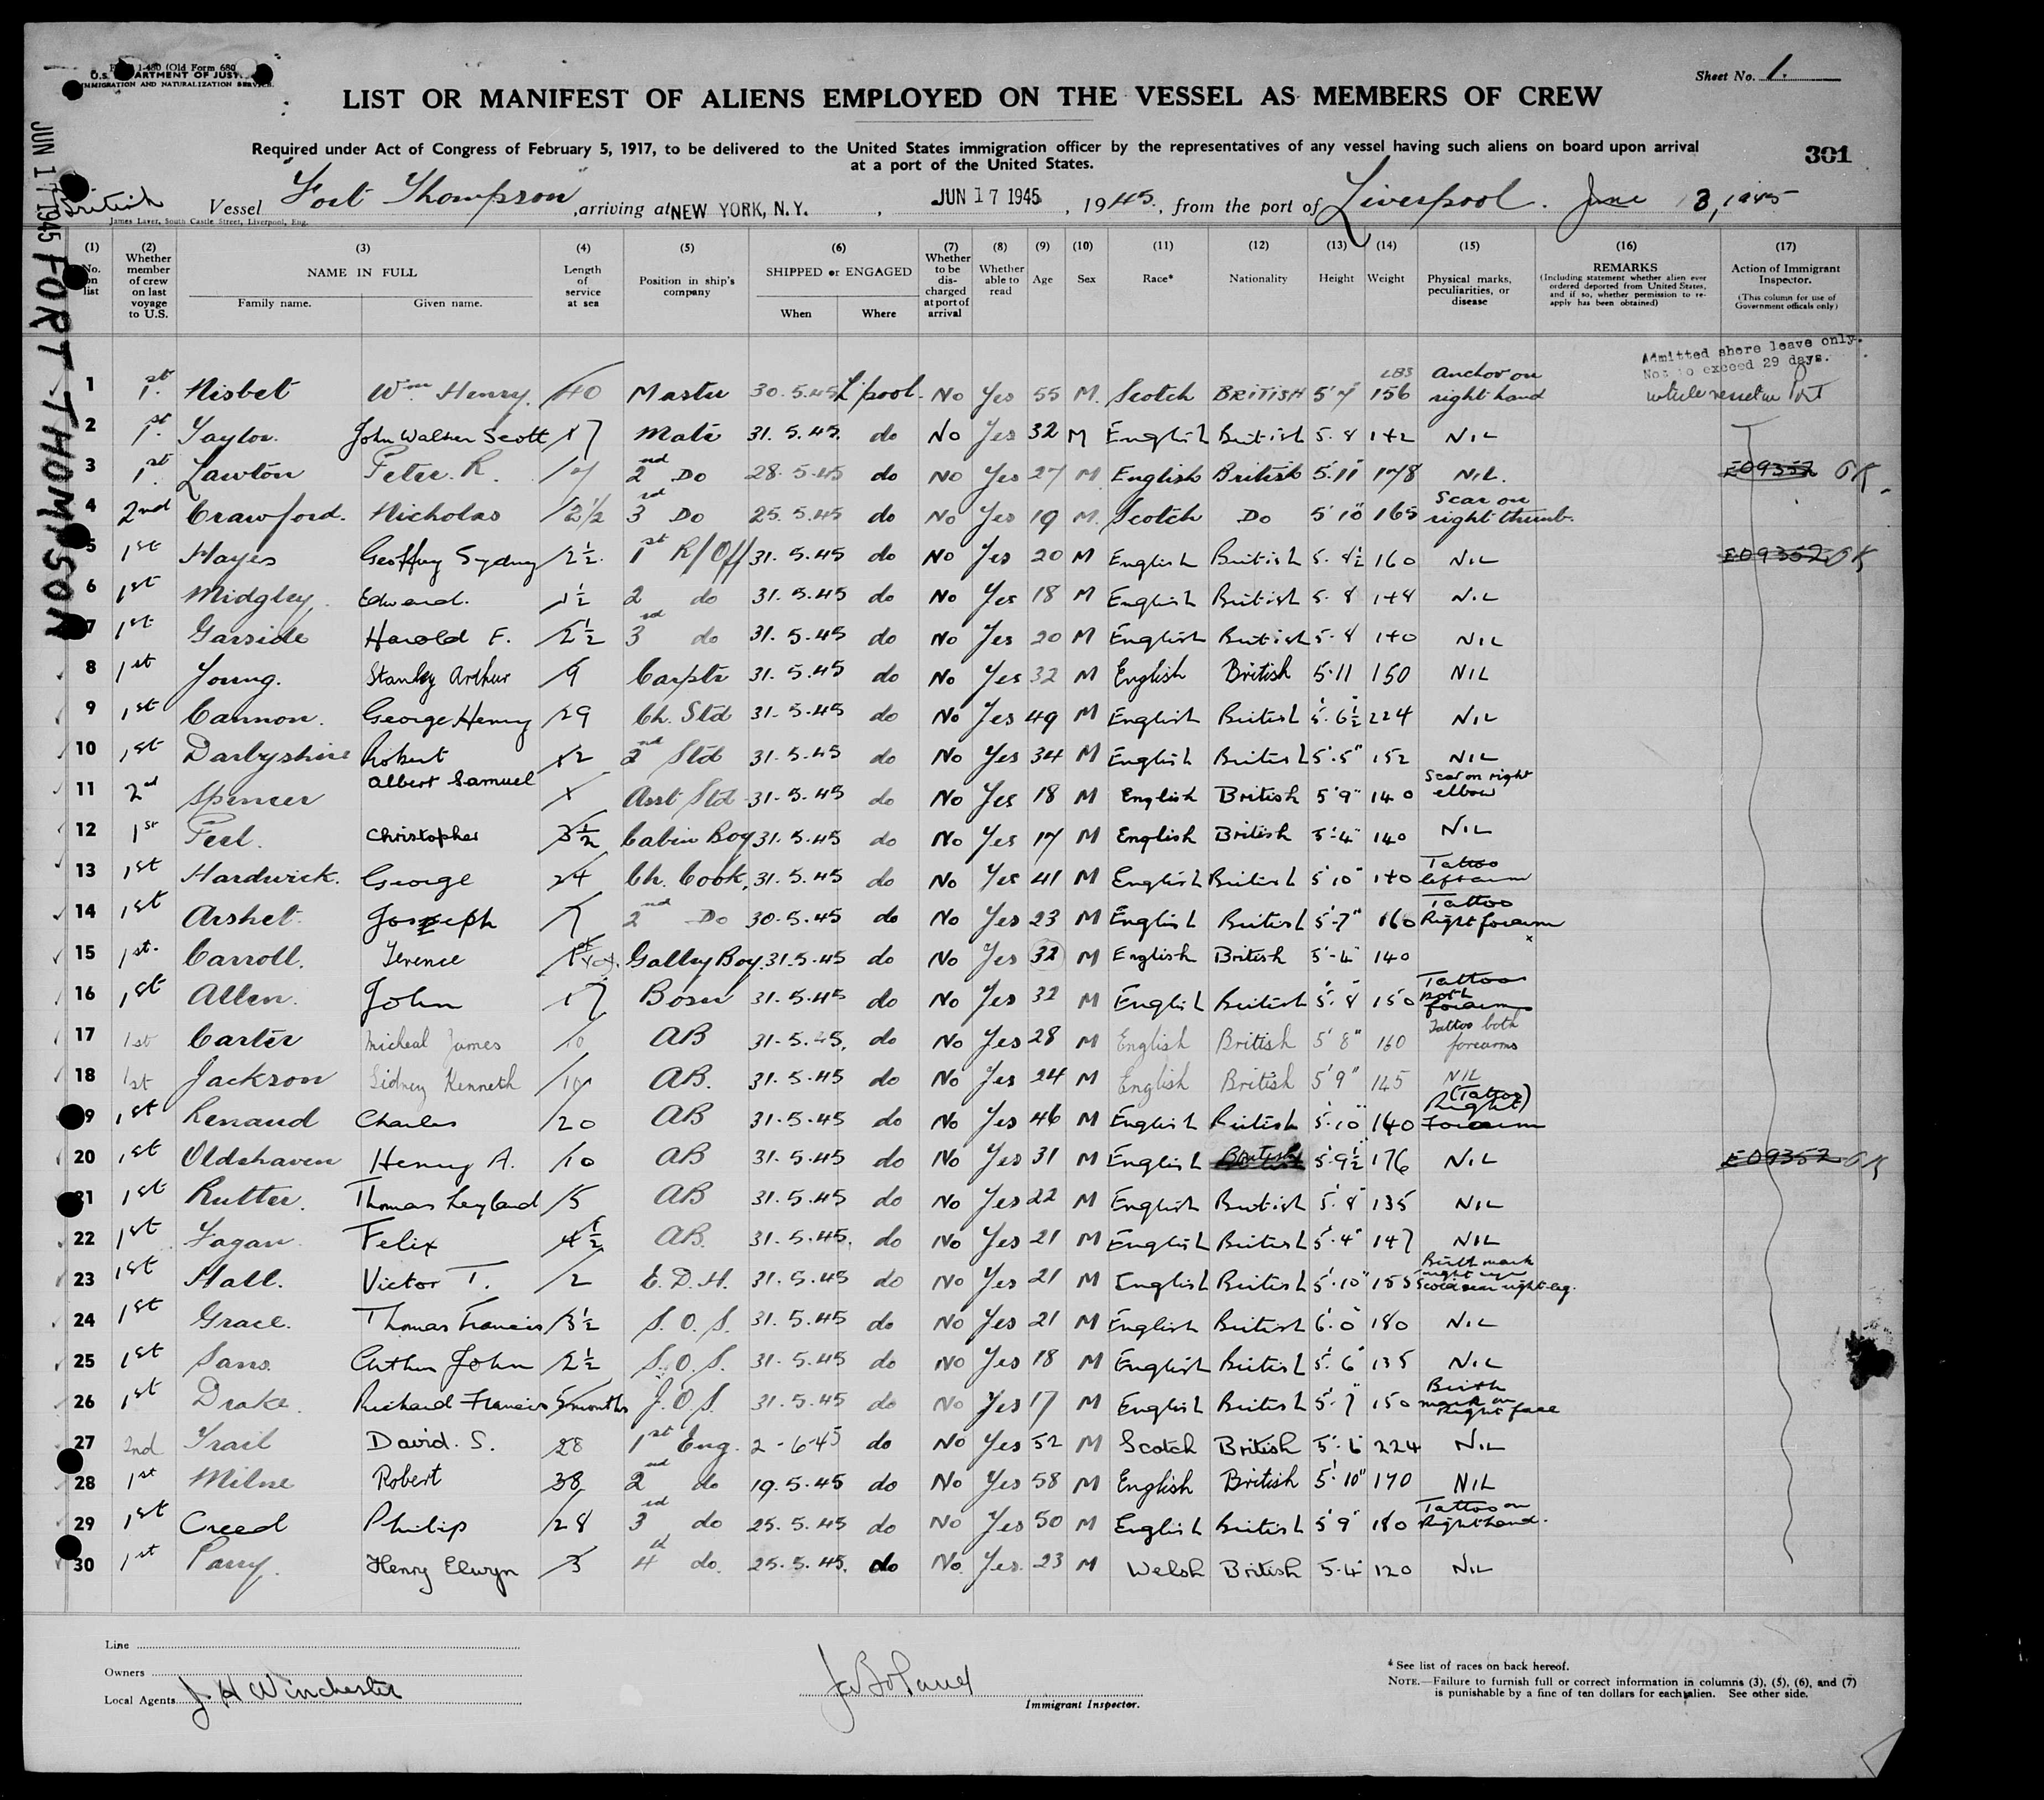 Form I-480 (Old Form 680
U.S. DEPARTMENT OF JUSTICE
IMMIGRATION AND NATURALIZATION SERVICE
Sheet No. 1.
LIST OR MANIFEST OF ALIENS EMPLOYED ON THE VESSEL AS MEMBERS OF CREW
Required under Act of Congress of February 5, 1917, to be delivered to the United States immigration officer by the representatives of any vessel having such aliens on board upon arrival
at a port of the United States.
301
JUN 17 1945 FORT THOMPSON
British Vessel "Fort Thompson", arriving at NEW YORK, N.Y., JUN 17 1945, 1945, from the port of Liverpool. June 3, 1945
James Laver, South Castle Street, Liverpool, Eng.
(1) (2) (3) (4) (5) (6) (7) (8) (9) (10) (11) (12) (13) (14) (15) (16) (17)
No. on list
Whether member of crew on last voyage to U.S.
NAME IN FULL
Family name. Given name.
Length of service at sea
Position in ship's company
SHIPPED or ENGAGED
When Where
Whether to be discharged at port of arrival
Whether able to read
Age
Sex
Race*
Nationality
Height
Weight
Physical marks, peculiarities, or disease
REMARKS
(Including statement whether alien ever ordered deported from United States, and if so, whether permission to re-apply has been obtained)
Action of Immigrant Inspector.
(This column for use of Government officials only)
Admitted shore leave only.
Not to exceed 29 days.
while vessel in Port
1 1st Nisbet Wm Henry. 40 Master 30.5.45 L'pool. No Yes 55 M. Scotch BRITISH 5'7 156 LBS Anchor on right hand
2 1st Taylor. John Walker Scott 17 Mate 31.5.45. do No Yes 32 M English British 5.8 142 NIL
3 1st Lawton Peter. R. 2nd Do 28.5.45 do No Yes 27 M English British 5.11 178 NIL. E09352 OK
4 2nd Crawford. Nicholas 2½ 3rd Do 25.5.45 do No Yes 19 M. Scotch Do 5'10" 165 Scar on right thumb.
5 1st Hayes Geoffrey Sydney 2½ 1st R/Off 31.5.45 do No Yes 20 M English British 5.8½ 160 NIL E09352 OK
6 1st Midgley, Edward. 1½ 2 do 31.5.45 do No Yes 18 M English British 5.8 148 NIL
7 1st Garside Harold F. 2½ 3rd do 31.5.45 do No Yes 20 M English British 5.8 140 NIL
8 1st Young. Stanley Arthur 9 Carptr 31.5.45 do No Yes 32 M English British 5.11 150 NIL
9 1st Cannon. George Henry 29 Ch. Std 31.5.45 do No Yes 49 M English British 5.6½ 224 NIL
10 1st Darbyshire Robert 12 2nd Std 31.5.45 do No Yes 34 M English British 5'.5" 152 NIL
11 2nd Spencer Albert Samuel 1 Asst Std 31.5.45 do No Yes 18 M English British 5'9" 140 Scar on right elbow
12 1st Feel. Christopher 3½ Cabin Boy 31.5.45 do No Yes 17 M English British 5'-4" 140 NIL
13 1st Hardwick. George 24 Ch. Cook, 31.5.45 do No Yes 41 M English British 5'10" 140 Tattoo left arm
14 1st Joseph 7 2nd Do 30.5.45 do No Yes 23 M English British 5'-7" 160 Tattoo Right forearm
15 1st. Carroll. Terence Galley Boy. 31.5.45 do No Yes 32 M English British 5'-4" 140
16 1st Allen. John 17 Bosn 31.5.45 do No Yes 32 M English British 5'.8" 150 Tattoo both forearms
17 1st Carter Micheal James 10 AB 31.5.45. do No Yes 28 M English British 5'8" 160 Tattoo both forearms
18 1st Jackson Sidney Kenneth 10 AB. 31.5.45 do No Yes 24 M English British 5'9" 145 NIL
19 1st Renaud Charles 20 AB 31.5.45 do No Yes 46 M English British 5'.10" 140 (Tattoo) Right) Forearm
20 1st Oldshaven Henry A. 10 AB 31.5.45 do No Yes 31 M English British 5'.9½ 176 NIL E09352 OK
21 1st Rutter. Thomas Leyland 5 AB 31.5.45 do No Yes 22 M English British 5'.8" 135 NIL
22 1st Fagan Felix 4½ AB. 31.5.45. do No Yes 21 M English British 5'.4" 147 NIL
23 1st Hall. Victor T. 2 E.D.H. 31.5.45 do No Yes 21 M English British 5'.10" 155 Birth mark right eye Scald scar right leg.
24 1st Grace. Thomas Francis 3½ S.O.S. 31.5.45 do No Yes 21 M English British 6'.0" 180 NIL
25 1st Sans. Arthur John 2½ S.O.S. 31.5.45 do No Yes 18 M English British 5'.6" 135 NIL
26 1st Drake. Richard Francis 5 months J.O.S. 31.5.45 do No Yes 17 M English British 5'.7" 150 Birth mark on Right face
27 2nd Trail David. S. 28 1st Eng. 2-6-45 do No Yes 52 M Scotch British 5'.6" 224 NIL
28 1st Milne Robert 38 2nd do 19.5.45 do No Yes 58 M English British 5'.10" 170 NIL
29 1st Creed Philip 28 3rd do 25.5.45 do No Yes 50 M English British 5'9" 180 Tattoo on Right hand.
30 1st Parry. Henry Elwyn 3 4th do. 25.5.45. do No. Yes. 23 M Welsh British 5.4" 120 NIL
Line
Owners
Local Agents J. H Winchester
Immigrant Inspector.
* See list of races on back hereof.
NOTE.—Failure to furnish full or correct information in columns (3), (5), (6), and (7)
is punishable by a fine of ten dollars for each alien. See other side.